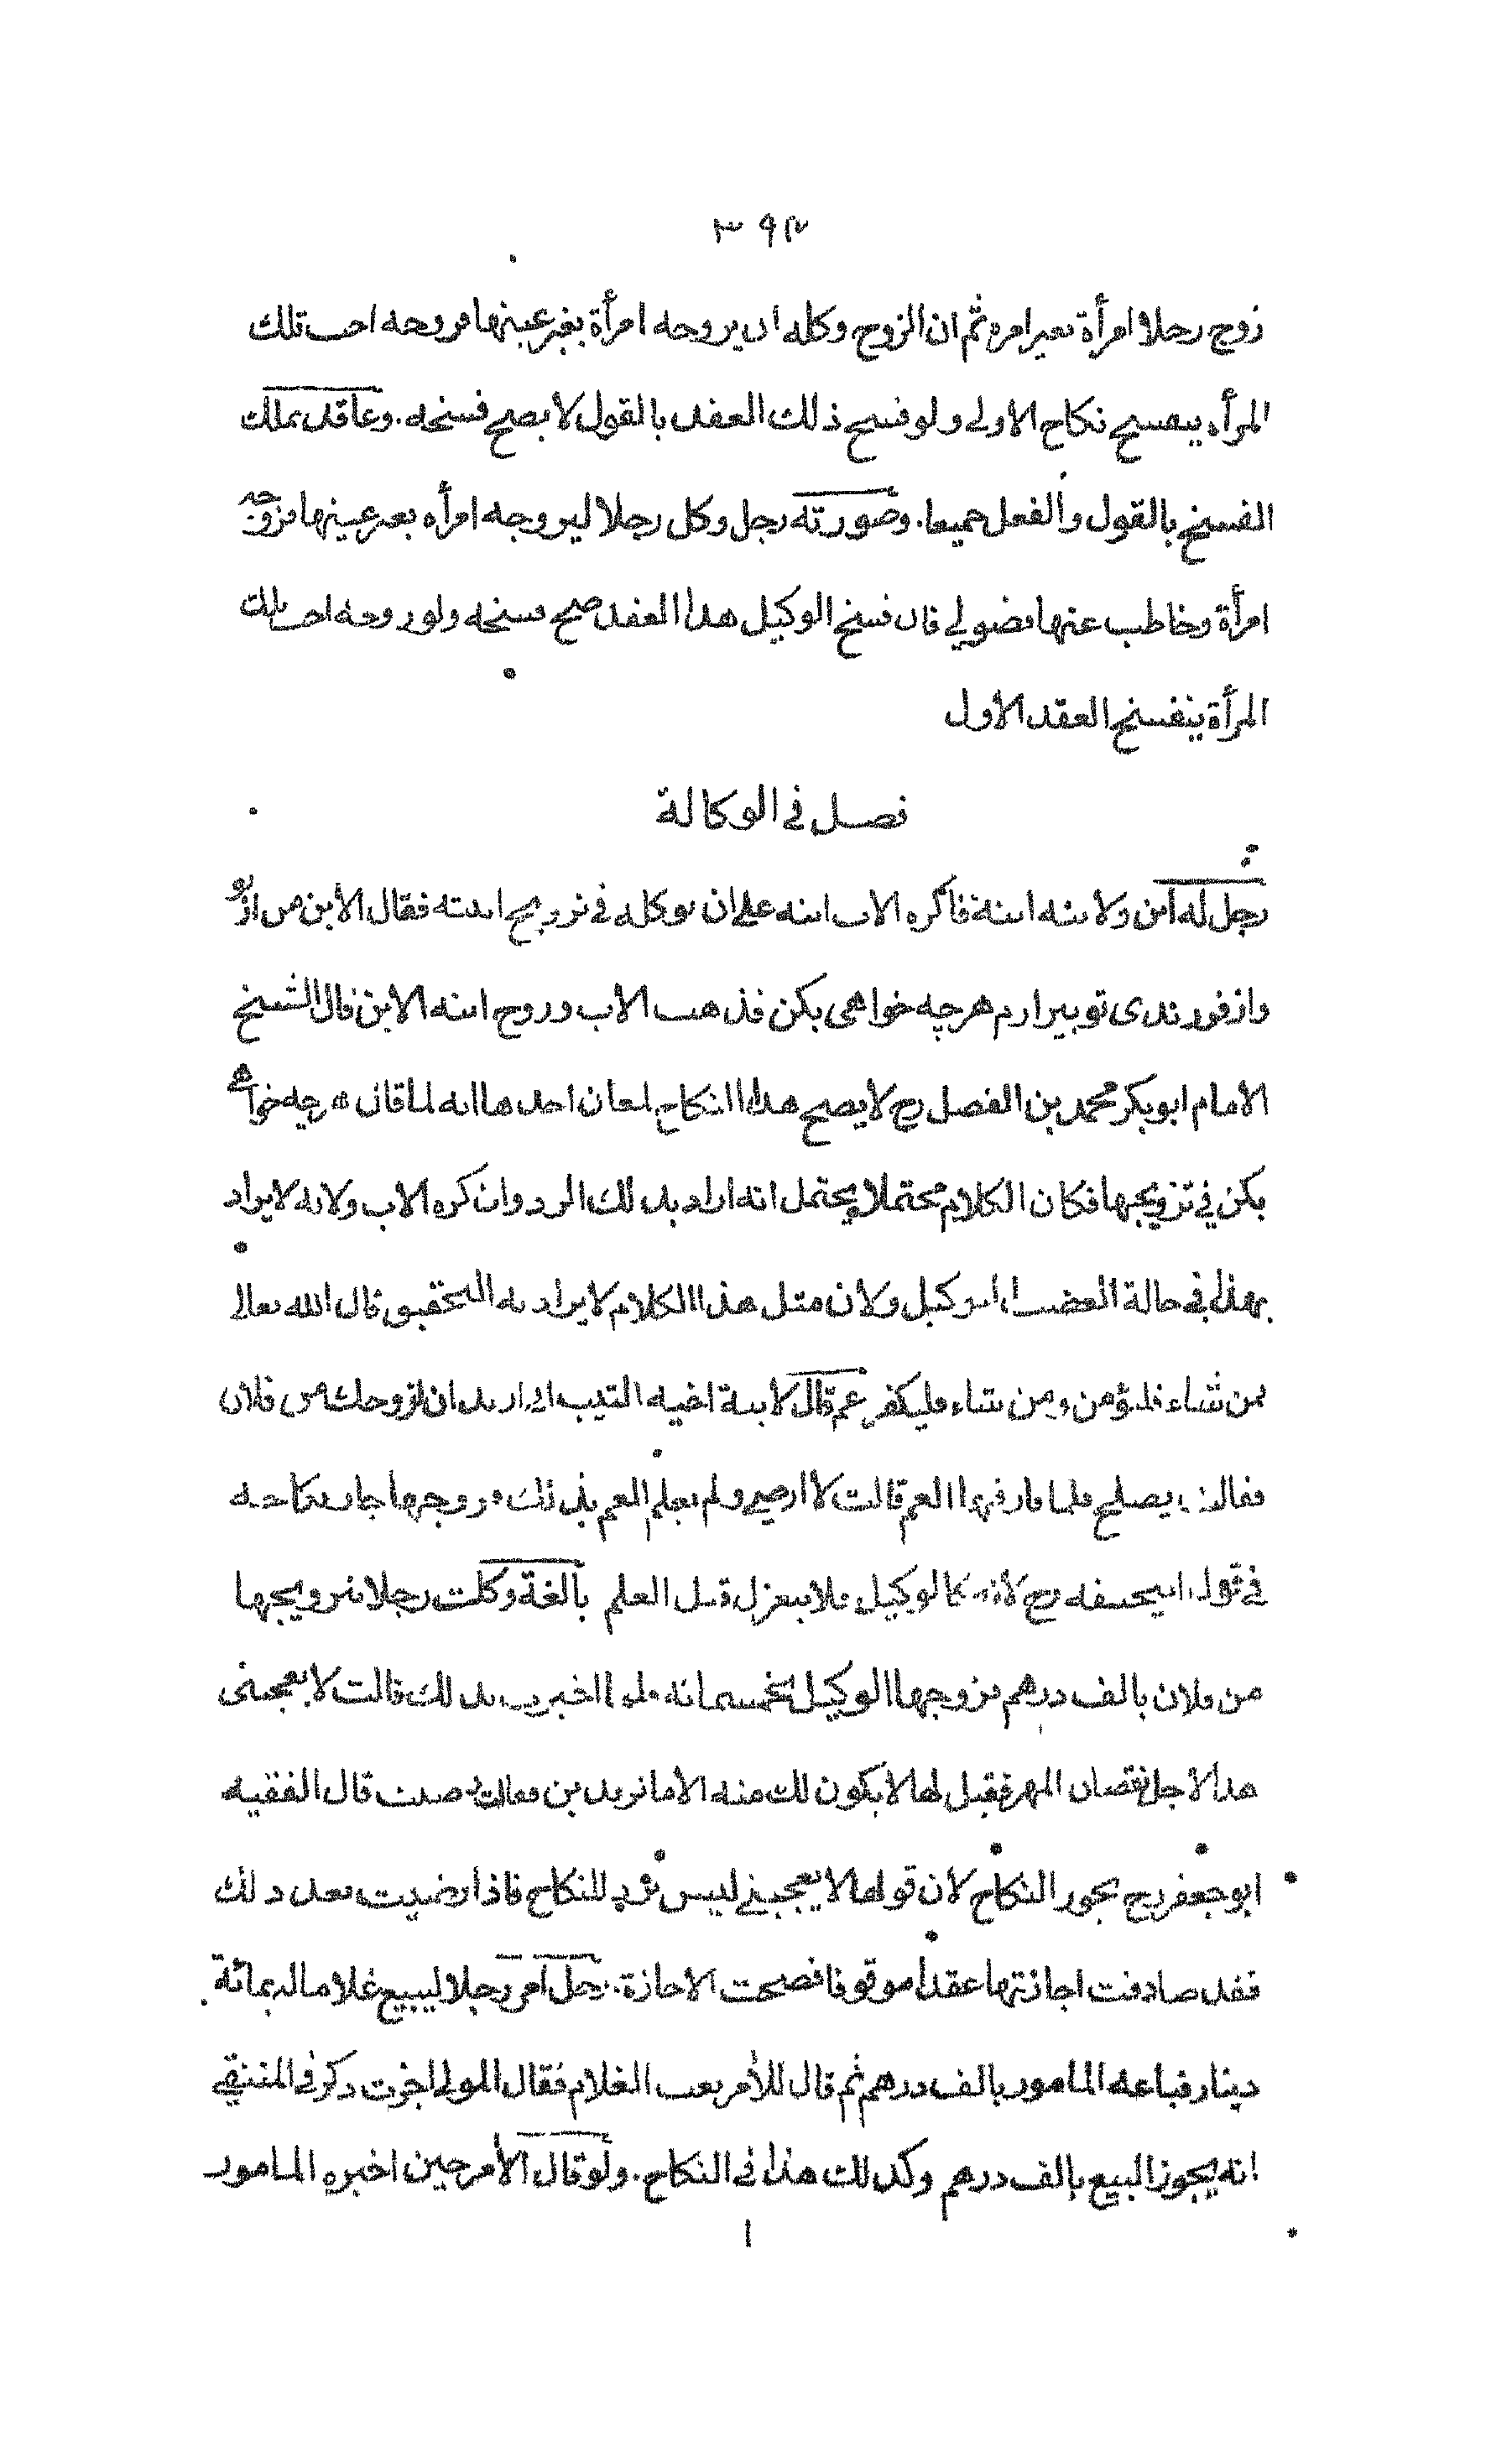 ٣٩٢
زوج رجلا امرأة بغير امره ثم ان الزوج وكله ان يزوجه امرأة بغير عينها فزوجه اخت تلك
المرأه ينفسخ نكاح الاولى ولو فسخ ذلك العقد بالقول لا يصح فسخه. وعاقد يملك
الفسخ بالقول والفعل جميعا. وصورته رجل وكل رجلا ليزوجه امرأه بغير عينها فزوجه
امرأة وخاطب عنها فضولي فان فسخ الوكيل هذا العقد صح فسخه ولو زوجه اخت تلك
المرأة ينفسخ العقد الاول
فصل في الوكالة
رجل له ابن ولابنه ابنة فاكره الاب ابنه على ان يوكله في تزويج ابنته فقال الابن من از تو
واز فرزندى تو بيزارم هرچه خواهى بكن فذهب الاب وزوج ابنة الابن قال الشيخ
الامام ابو بكر محمد بن الفضل رح لا يصح هذا النكاح لمعان احدها انه لما قال هرچه خواهى
بكن في تزويجها فكان الكلام محتملا ويحتمل انه اراد بذلك الرد وان كره الاب ولانه لا يراد
بهذا في حالة الغضب التوكيل ولان مثل هذا الكلام لا يراد به التحقيق قال الله تعالى
فمن شاء فليؤمن ومن شاء فليكفر عم قال لابنة اخيه الثيب اني اريد ان ازوجك من فلان
فقالت يصلح فلما فارقها العم قالت لا ارضى ولم يعلم العم بذلك وزوجها جاز نكاحه
في قول ابيحنيفه رح لانه كالوكيل فلا ينعزل قبل العلم بالغة وكلت رجلا بتزويجها
من فلان بالف درهم فزوجها الوكيل بخمسمائة فلما اخبرت بذلك قالت لا يعجبنى
هذا لاجل نقصان المهر فقيل لها لا يكون لك منه الا ما تريدين فقالت رضيت قال الفقيه
ابو جعفر رح يجوز النكاح لان قولها لا يعجبني ليس برد للنكاح فاذا رضيت بعد ذلك
فقد صادفت اجازتها عقدا موقوفا فصحت الاجازة. رجل امر رجلا ليبيع غلاما له بمائة
دينار فباعه المامور بالف درهم ثم قال للأمر بعت الغلام فقال المولى اجزت ذكر في المنتقى
انه يجوز البيع بالف درهم وكذلك هذا في النكاح. ولو قال الأمر حين اخبره المامور